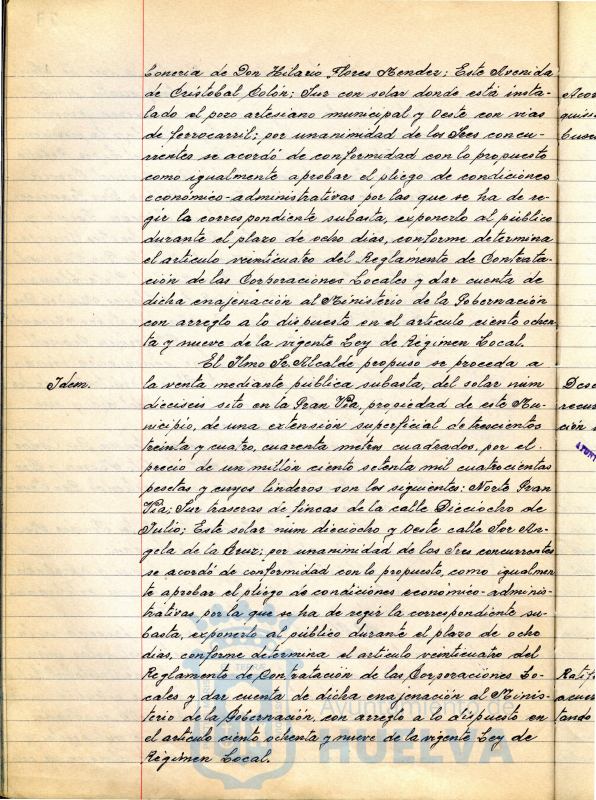 boneria de Don Hilario Flores Mendez; Este Avenida
de Cristobal Colón; Sur con solar donde está insta-
lado el pozo artesiano municipal y Oeste con vias
de ferrocarril; por unanimidad de los Sres concu-
rrentes se acordó de conformidad con lo propuesto
como igualmente aprobar el pliego de condiciones
económico-administrativas por las que se ha de re-
gir la correspondiente subasta, exponerlo al público
durante el plazo de ocho dias, conforme determina
el articulo veinticuatro del Reglamento de Contrata-
ción de las Corporaciones Locales y dar cuenta de
dicha enajenación al Ministerio de la Gobernación
con arreglo a lo dispuesto en el articulo ciento ochen-
ta y nueve de la vigente Ley de Régimen Local.
El Ilmo Sr. Alcalde propuso se proceda a
Idem.
la venta mediante pública subasta, del solar núm
dieciseis sito en la Gran Via, propiedad de este Mu-
nicipio, de una extensión superficial de trescientos
treinta y cuatro, cuarenta metros cuadrados, por el
precio de un millón ciento setenta mil cuatrocientas
pesetas y cuyos linderos son los siguientes: Norte Gran
Via; Sur traseras de fincas de la calle Dieciocho de
Julio; Este solar núm dieciocho y Oeste calle Sor An-
gela de la Cruz; por unanimidad de los Sres concurrentes
se acordó de conformidad con lo propuesto, como igualmen
te aprobar el pliego de condiciones económico-adminis-
trativas por la que se ha de regir la correspondiente su-
basta, exponerlo al público durante el plazo de ocho
dias, conforme determina el articulo veinticuatro del
Reglamento de Contratación de las Corporaciones Lo-
cales y dar cuenta de dicha enajenación al Minis-
terio de la Gobernación, con arreglo a lo dispuesto en
el articulo ciento ochenta y nueve de la vigente Ley de
Régimen Local.
Ayuntamiento de
HUELVA
Acor
quisi
Deso
recur
ción
Ratif
acuer
tando